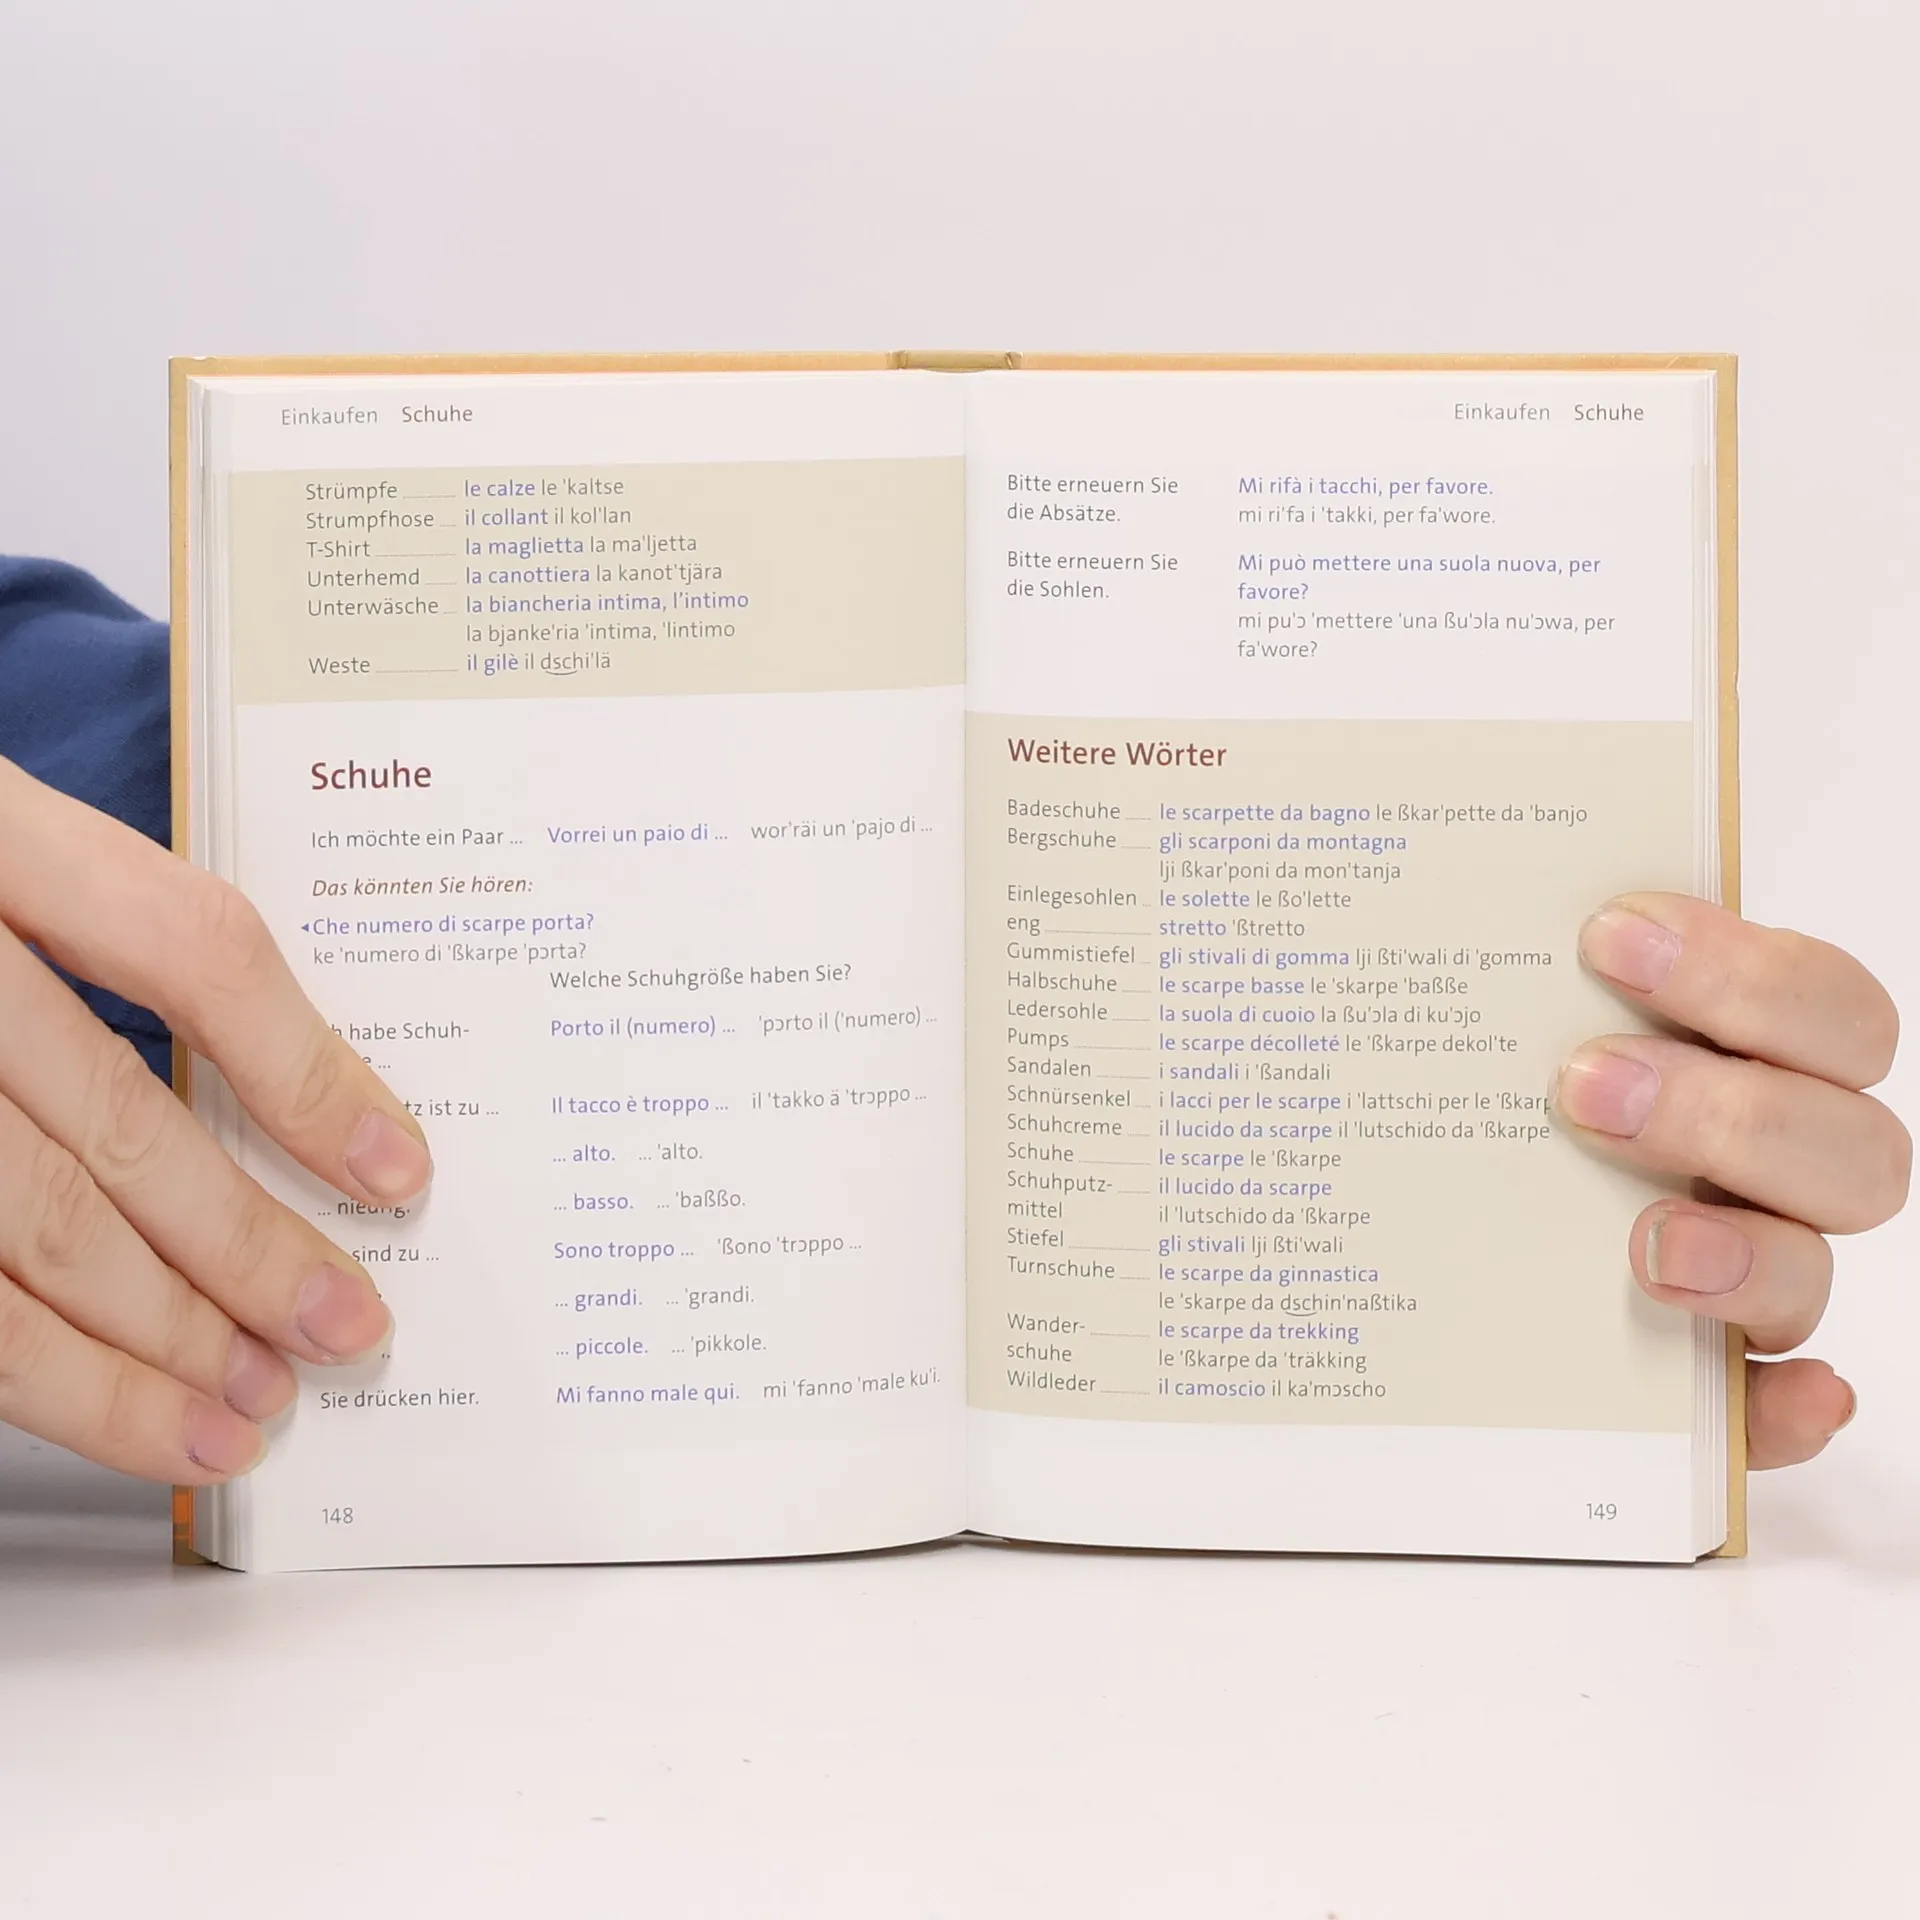 Einkaufen Schuhe
Strümpfe le calze le 'kaltse
Strumpfhose il collant il kol'lan
T-Shirt la maglietta la ma'ljetta
Unterhemd la canottiera la kanot'tjära
Unterwäsche la biancheria intima, l'intimo
la bjanke'ria 'intima, 'lintimo
Weste il gilè il dschi'lä
Schuhe
Ich möchte ein Paar ... Vorrei un paio di ... wor'räi un 'pajo di ...
Das könnten Sie hören:
◂Che numero di scarpe porta?
ke 'numero di 'ßkarpe 'pɔrta?
Welche Schuhgröße haben Sie?
habe Schuh- Porto il (numero) ... 'pɔrto il ('numero) ...
...
ist zu ... Il tacco è troppo ... il 'takko ä 'trɔppo ...
... alto. ... 'alto.
... niedrig. ... basso. ... 'baßßo.
sind zu ... Sono troppo ... 'ßono 'trɔppo ...
... grandi. ... 'grandi.
... piccole. ... 'pikkole.
Sie drücken hier. Mi fanno male qui. mi 'fanno 'male ku'i.
148
Einkaufen Schuhe
Bitte erneuern Sie Mi rifà i tacchi, per favore.
die Absätze. mi ri'fa i 'takki, per fa'wore.
Bitte erneuern Sie Mi può mettere una suola nuova, per
die Sohlen. favore?
mi pu'ɔ 'mettere 'una ßu'ɔla nu'ɔwa, per
fa'wore?
Weitere Wörter
Badeschuhe le scarpette da bagno le ßkar'pette da 'banjo
Bergschuhe gli scarponi da montagna
lji ßkar'poni da mon'tanja
Einlegesohlen le solette le ßo'lette
eng stretto 'ßtretto
Gummistiefel gli stivali di gomma lji ßti'wali di 'gomma
Halbschuhe le scarpe basse le 'skarpe 'baßße
Ledersohle la suola di cuoio la ßu'ɔla di ku'ɔjo
Pumps le scarpe décolleté le 'ßkarpe dekol'te
Sandalen i sandali i 'ßandali
Schnürsenkel i lacci per le scarpe i 'lattschi per le 'ßkarp
Schuhcreme il lucido da scarpe il 'lutschido da 'ßkarpe
Schuhe le scarpe le 'ßkarpe
Schuhputz- il lucido da scarpe
mittel il 'lutschido da 'ßkarpe
Stiefel gli stivali lji ßti'wali
Turnschuhe le scarpe da ginnastica
le 'skarpe da dschin'naßtika
Wander- le scarpe da trekking
schuhe le 'ßkarpe da 'träkking
Wildleder il camoscio il ka'mɔscho
149